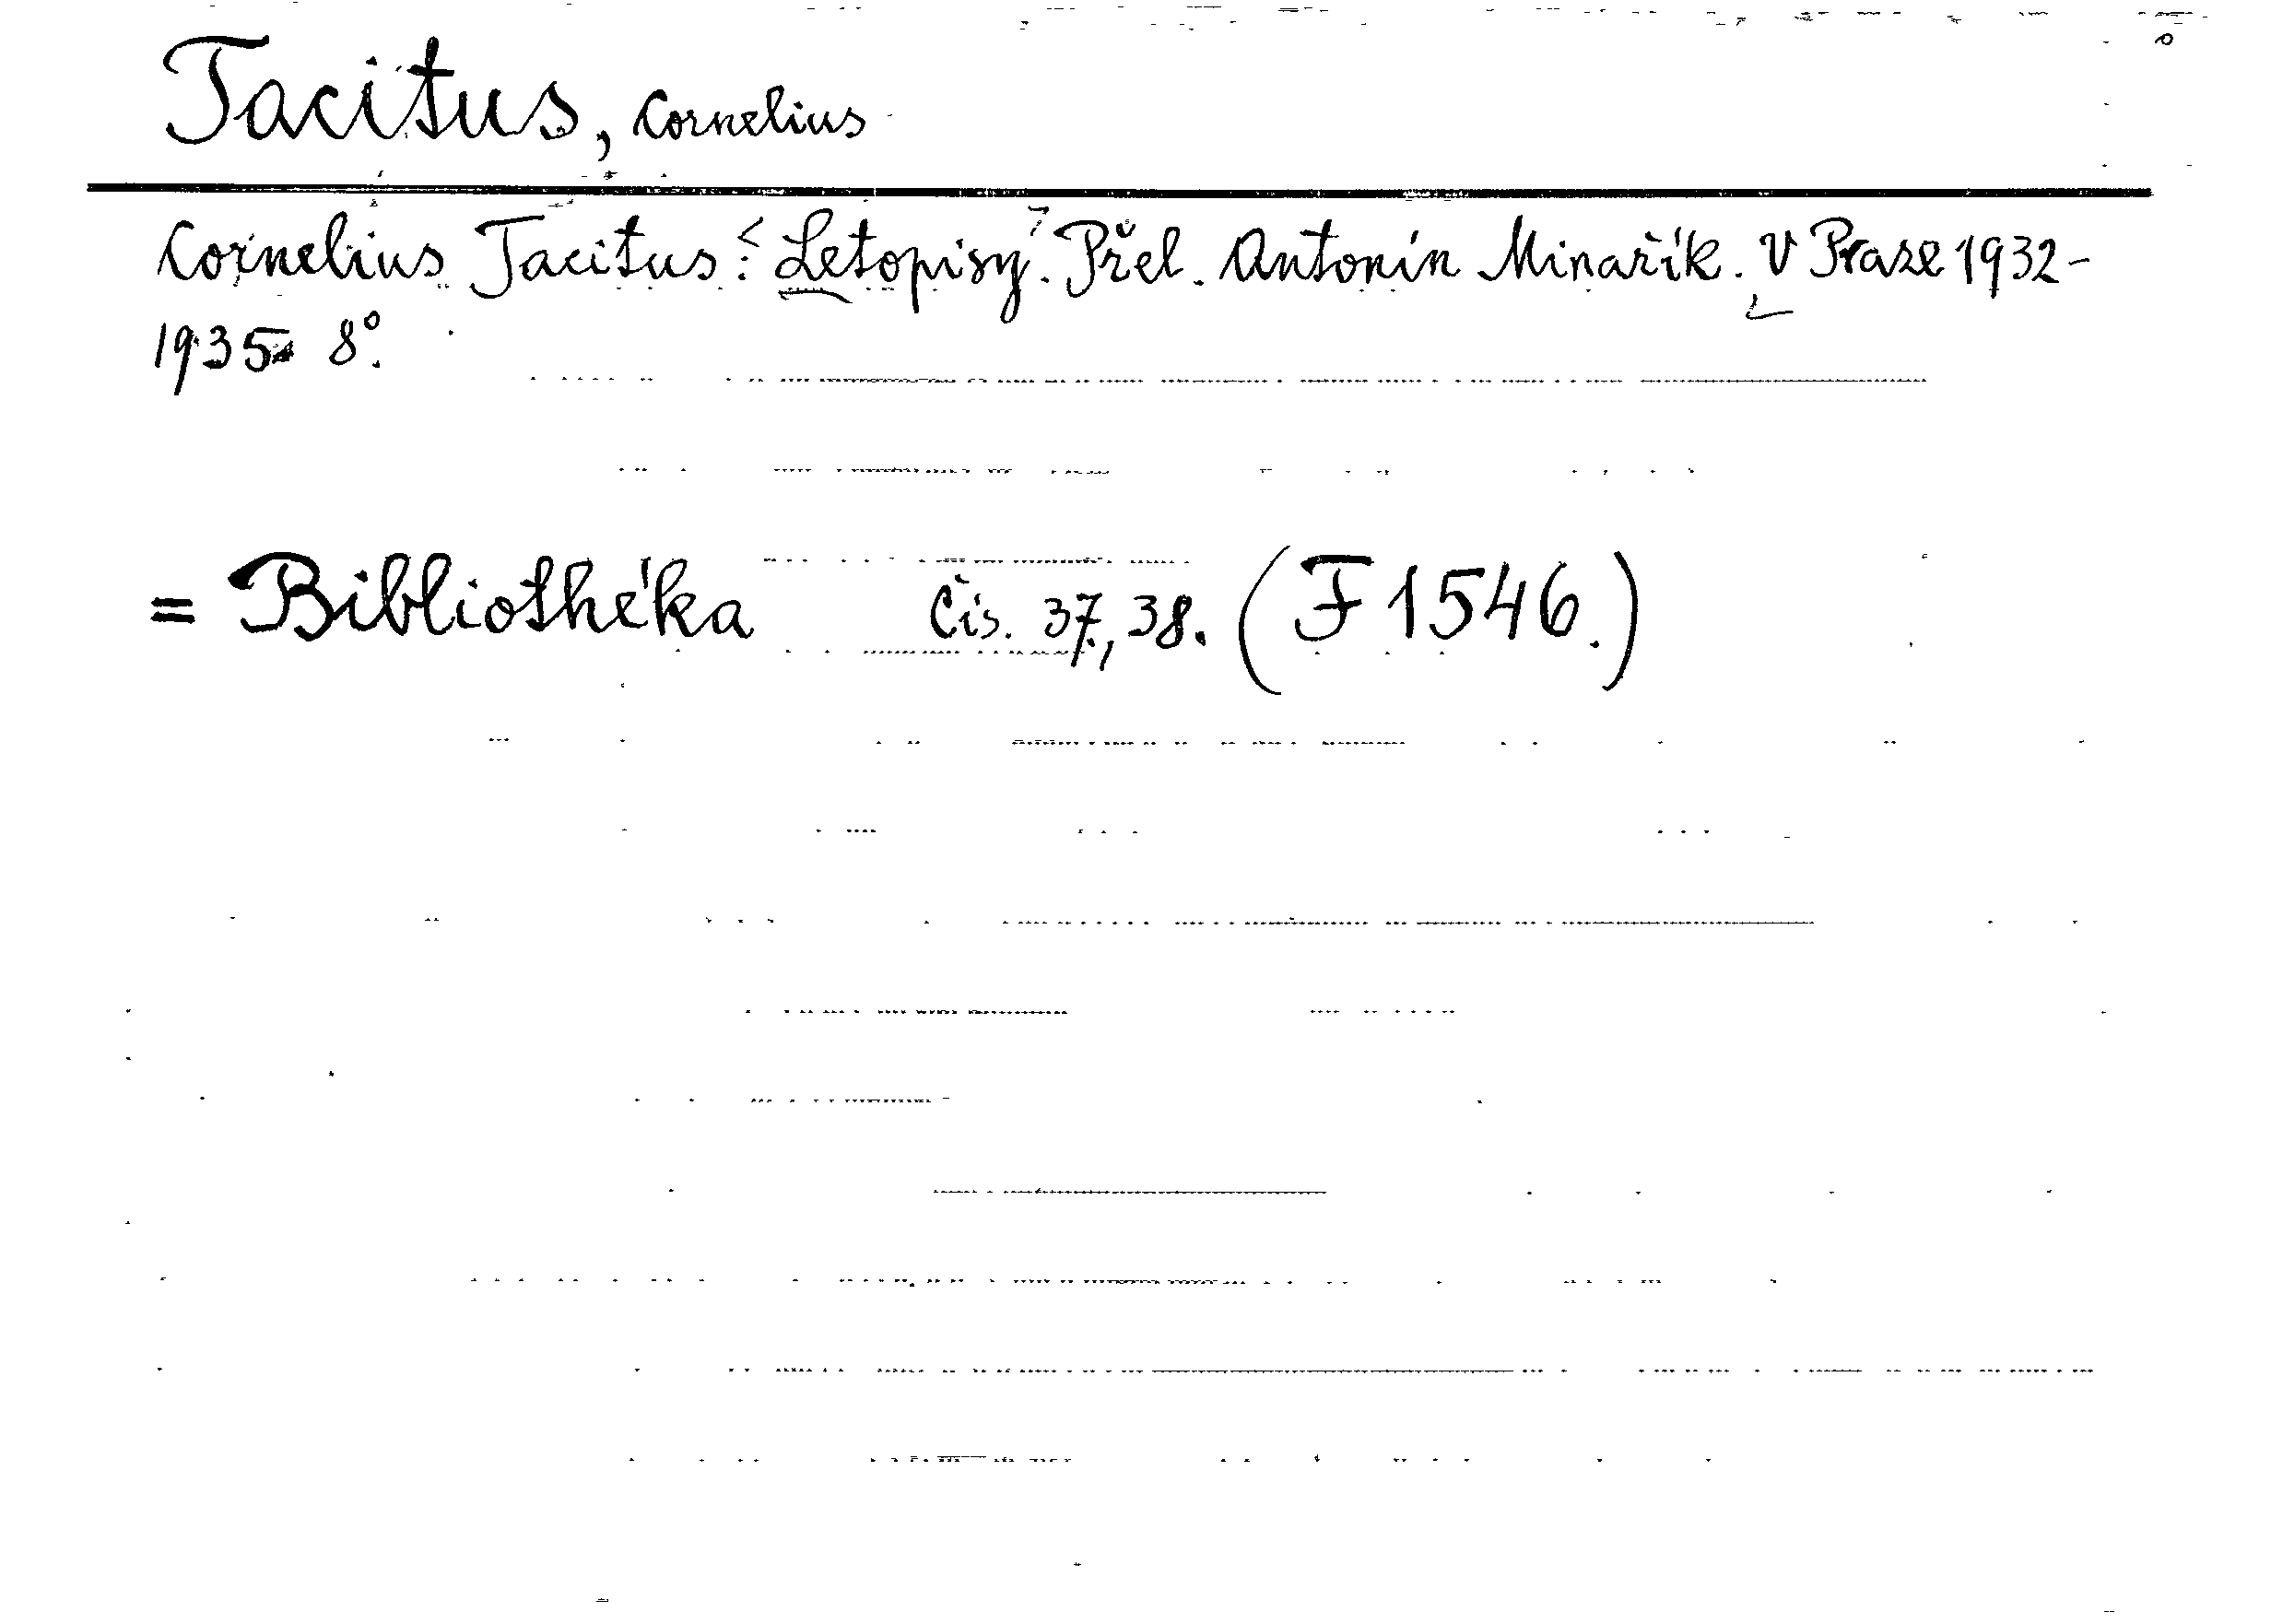 Tacitus, Cornelius
Cornelius Tacitus: Letopisy. Přel. Antonín Minařík. V Praze 1932-
1935. 8°.
= Bibliothéka čís. 37., 38. (F 1546.)